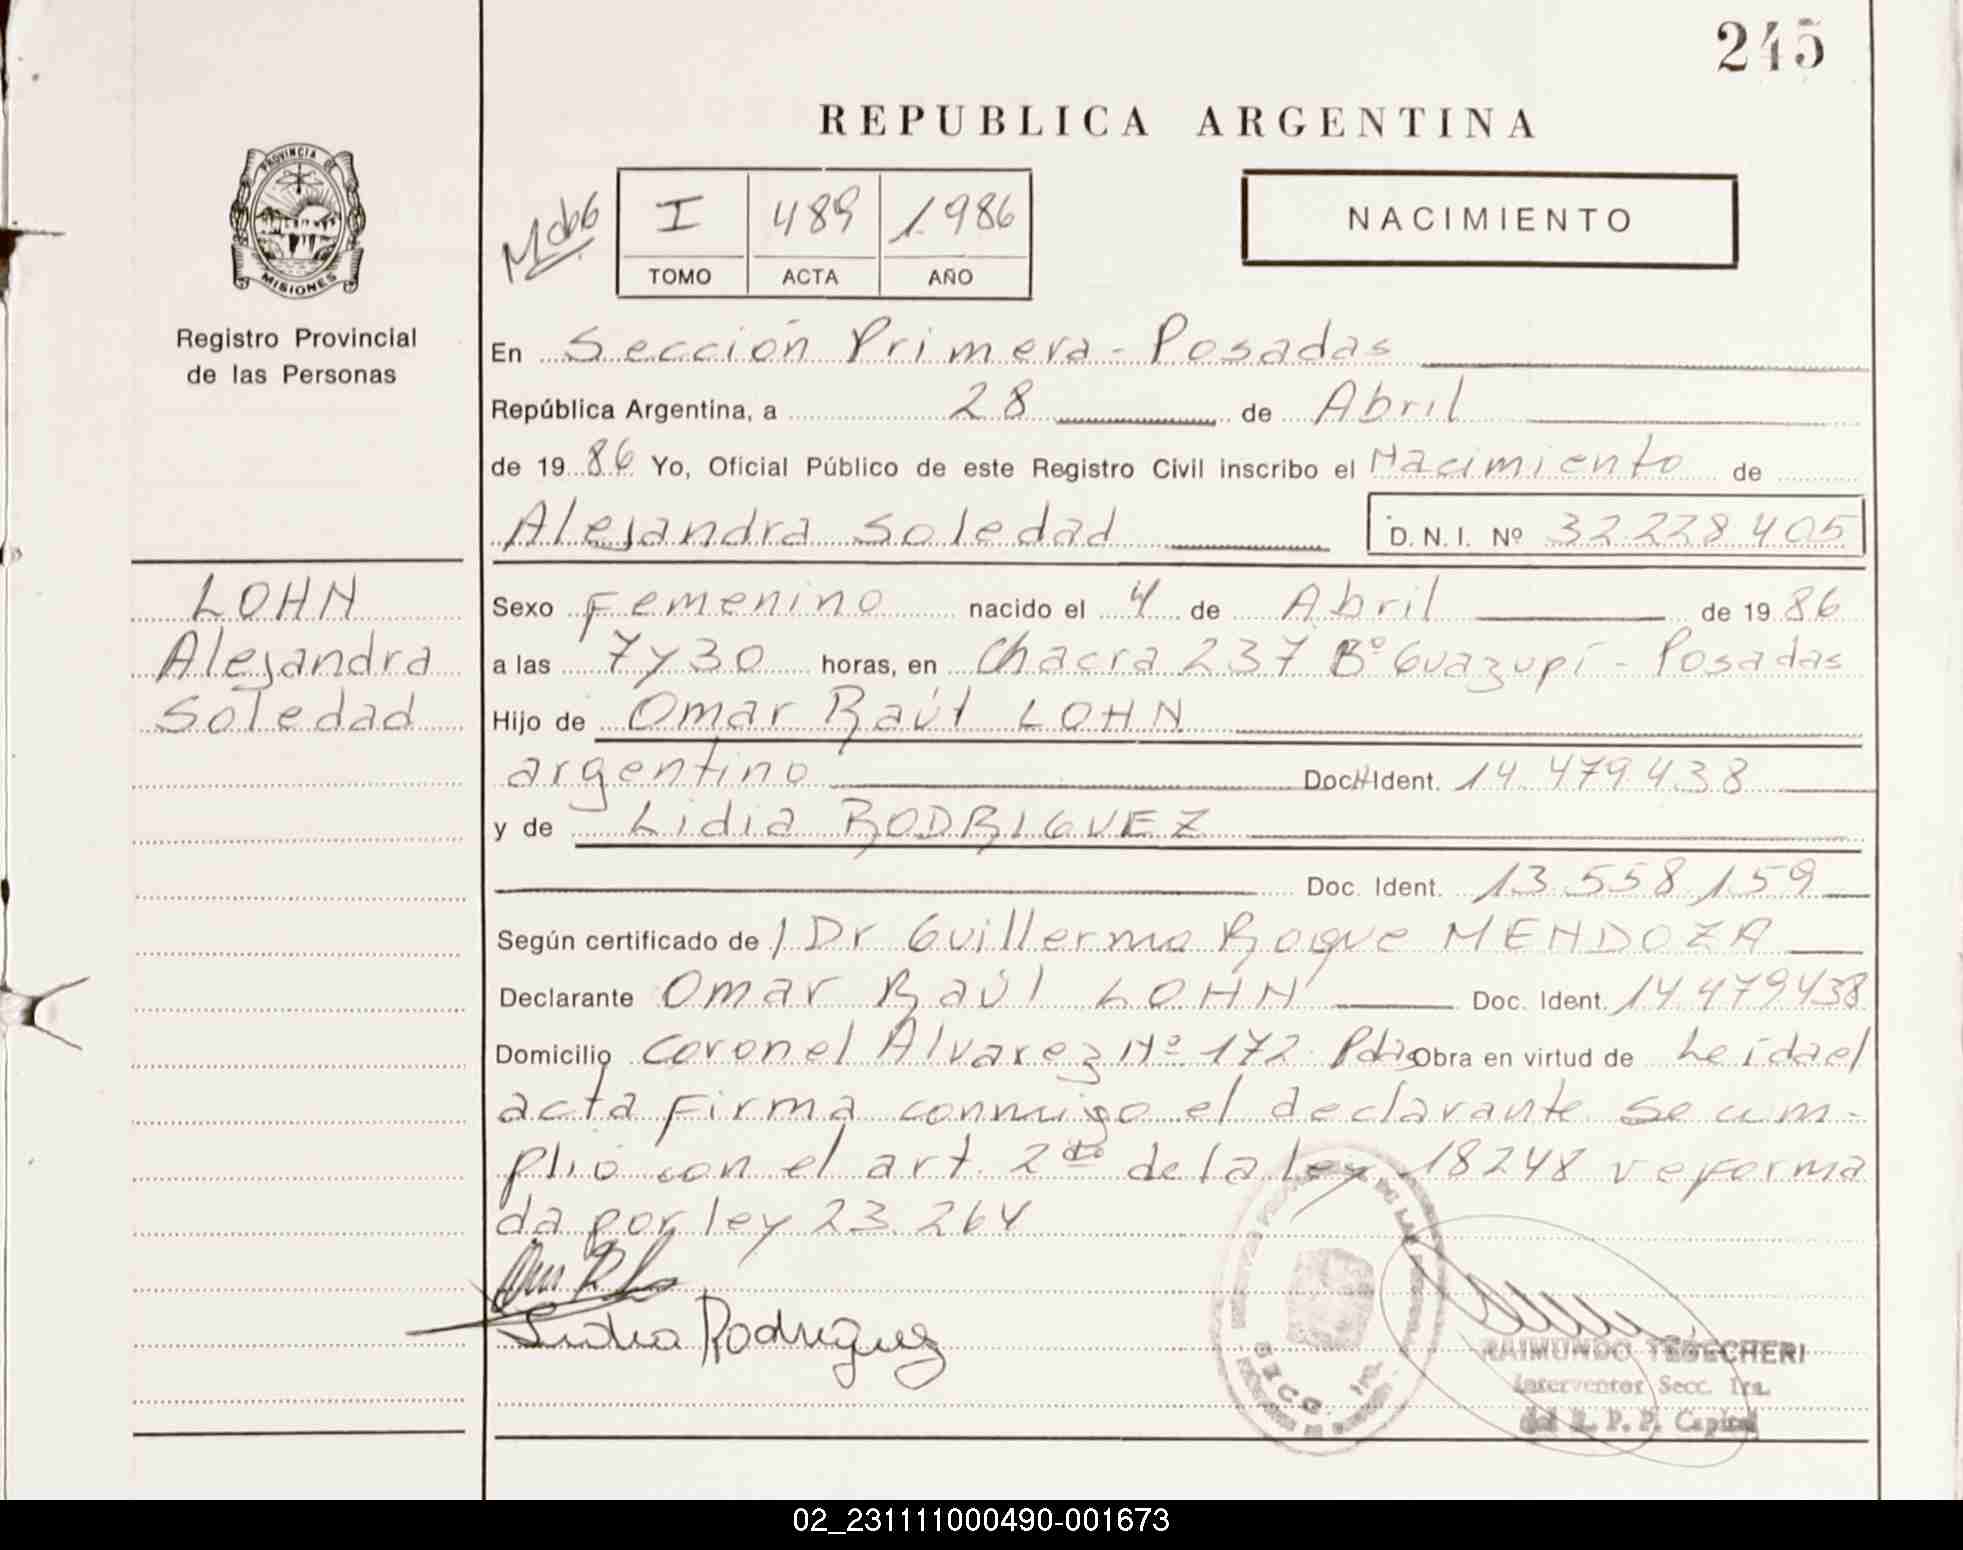 245
REPUBLICA ARGENTINA
PROVINCIA DE
MISIONES
Registro Provincial
de las Personas
I 489 1.986
TOMO ACTA AÑO
NACIMIENTO
En Sección Primera - Posadas
República Argentina, a 28 de Abril
de 19 86 Yo, Oficial Público de este Registro Civil inscribo el Nacimiento de
Alejandra Soledad D.N.I. Nº 32.228.405
LOHN
Alejandra
Soledad
Sexo Femenino nacido el 4 de Abril de 19 86
a las 7 y 30 horas, en Chacra 237 Bº Guazupí - Posadas
Hijo de Omar Raúl LOHN
argentino Doc. Ident. 14.479.438
y de Lidia RODRIGUEZ
Doc. Ident. 13.558.159
Según certificado de Dr Guillermo Roque MENDOZA
Declarante Omar Raúl LOHN Doc. Ident. 14.479.438
Domicilio Coronel Alvarez Nº 172 Pdas Obra en virtud de Leída el
acta firma conmigo el declarante se cum-
plió con el art. 2do de la ley 18248 reforma
da por ley 23.264
Lidia Rodriguez
RAIMUNDO TEDECHERI
Interventor Secc. 1ra.
del R. P. P. Capital
02_231111000490-001673